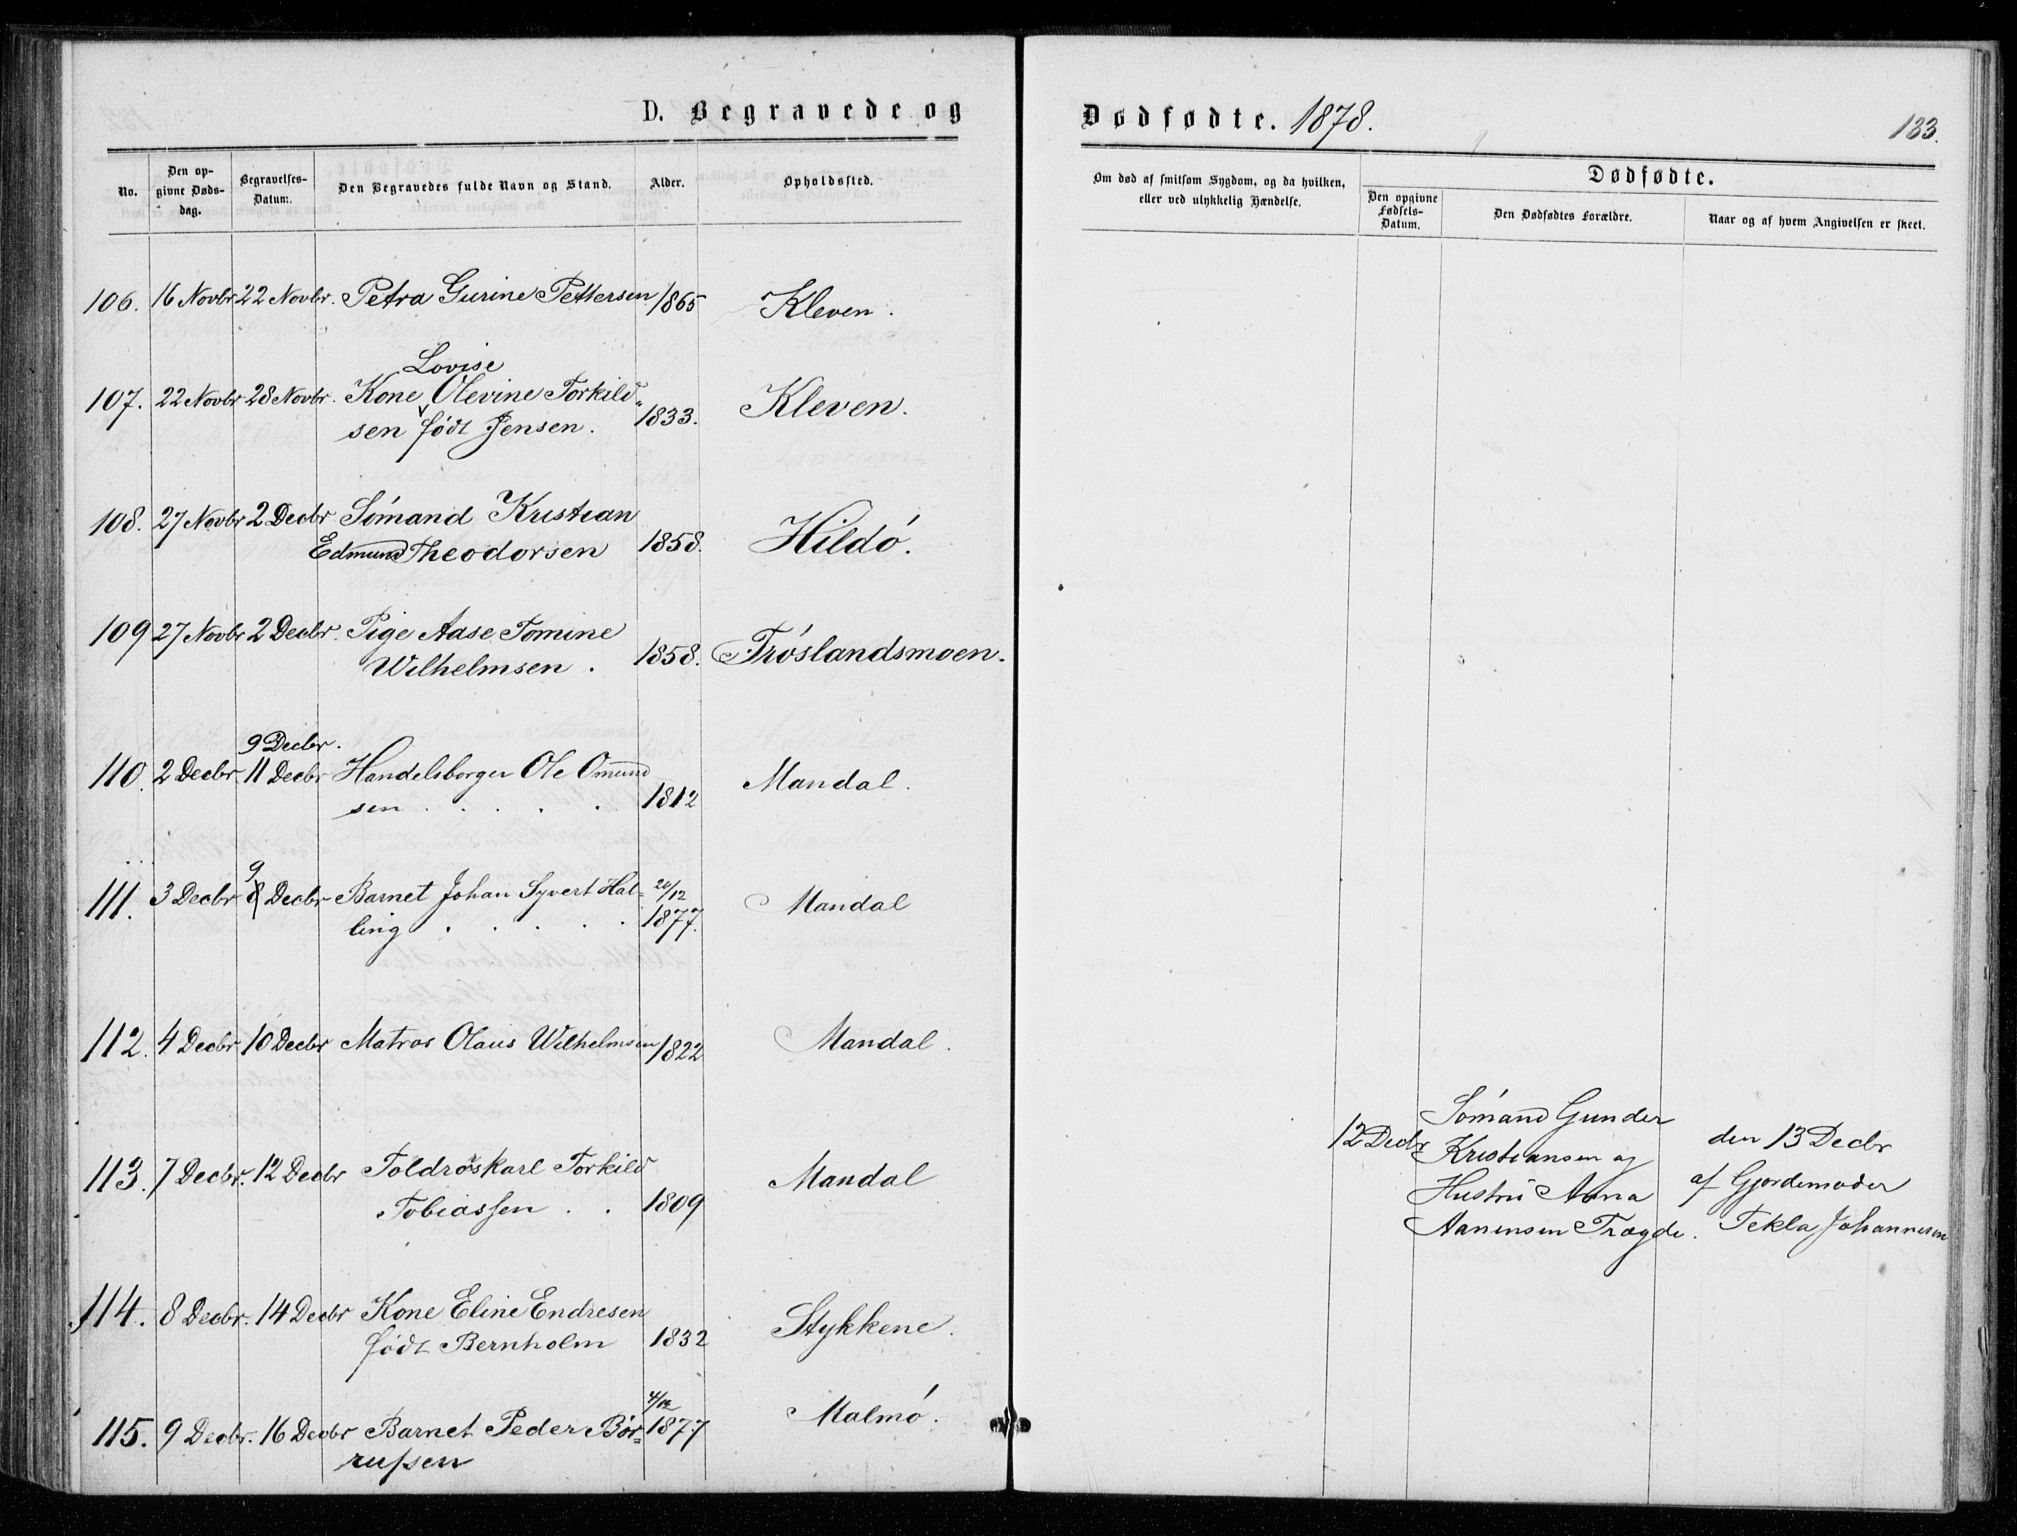 D. Begravede og
No.
Den op-
givne Døds-
dag.
Begravelses-
Datum.
Den Begravedes fulde Navn og Stand.
Alder.
Opholdssted.
106. 16 Novbr 22 Novbr. Petra Gurine Pettersen 1865 Kleven.
Lovise
107. 22 Novbr 28 Novbr. Kone Olevine Torkild-
sen født Jensen. 1833. Kleven.
108. 27 Novbr 2 Decbr Sømand Kristian
Edmund Theodorsen 1858. Hildø.
109 27 Novbr 2 Decbr. Pige Aase Tomine
Wilhelmsen. 1858. Trøslandsmoen.
9 Decbr.
110. 2 Decbr 11 Decbr Handelsborger Ole Omund
sen 1812 Mandal.
9
111. 3 Decbr 8 Decbr Barnet Johan Syvert Hal- 20/12
ling 1877. Mandal
112. 4 Decbr 10 Decbr Matros Olaus Wilhelmsen 1822 Mandal.
113. 7 Decbr. 12 Decbr Toldrorskarl Torkild
Tobiassen 1809 Mandal
114. 8 Decbr. 14 Decbr Kone Eline Endresen
født Bernholm 1832 Stykkene.
4/12
115. 9 Decbr. 16 Decbr Barnet Peder Bør- 1877 Malmø.
russen
Dødfødte. 1878.
133.
Om død af smitsom Sygdom, og da hvilken,
eller ved ulykkelig Hændelse.
Dødfødte.
Den opgivne
Fødsels-
Datum.
Den Dødfødtes Forældre.
Naar og af hvem Angivelsen er skeet.
12 Decbr
Sømand Gunder
Kristiansen og
Hustru Anna
Aanensen Trægde.
den 13 Decbr
af Gjordemoder
Tekla Johannesen